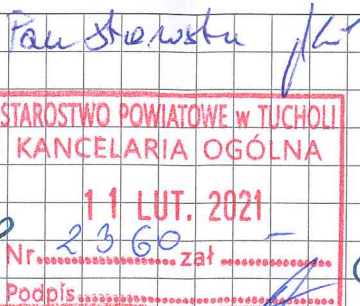 Pan Starosta
STAROSTWO POWIATOWE w TUCHOLI
KANCELARIA OGÓLNA
11 LUT. 2021
Nr 2360 zał -
Podpis